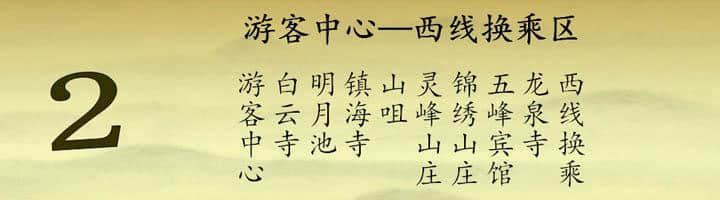 游客中心—西线换乘区
2
游客中心
白云寺
明月池
镇海寺
山咀
灵峰山庄
锦绣山庄
五峰宾馆
龙泉寺
西线换乘